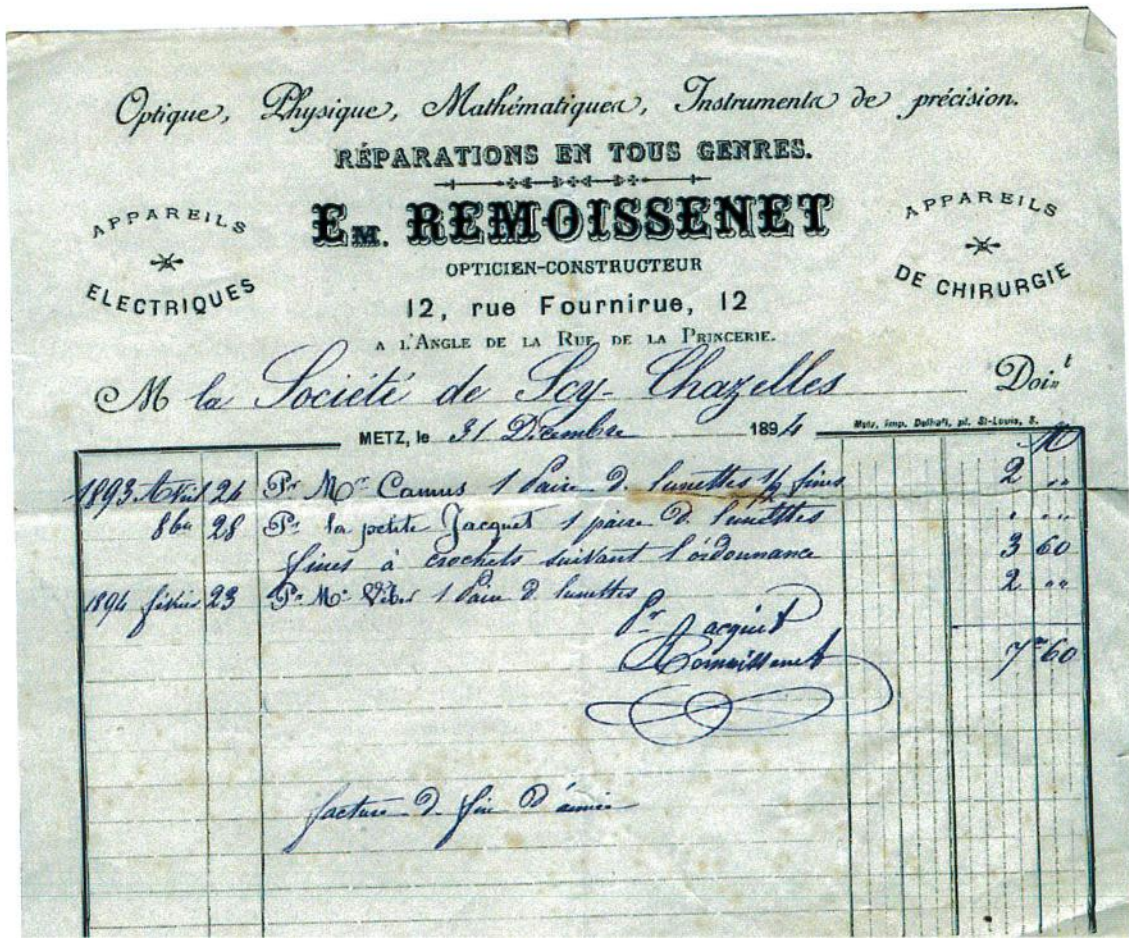 Optique, Physique, Mathématiques, Instruments de précision.
RÉPARATIONS EN TOUS GENRES.
APPAREILS ELECTRIQUES
EM. REMOISSENET
APPAREILS DE CHIRURGIE
OPTICIEN-CONSTRUCTEUR
12, rue Fournirue, 12
A L'ANGLE DE LA RUE DE LA PRINCERIE.
M la Société de Scy-Chazelles Doivt
METZ, le 31 Décembre 1894
Metz, imp. Delhalt, pl. St-Louis, 8.
M
1893 Avril 24 Pr Mr Camus 1 Paire D. lunettes 1/2 fines 2 "
8bre 28 Pr la petite Jacquet 1 paire D. lunettes " "
fines à crochets suivant l'ordonnance 3 60
1894 février 23 Pr Mr 1 Paire D. lunettes 2 "
Pr acquit
Remoissenet
7 60
facture D. fin D'année